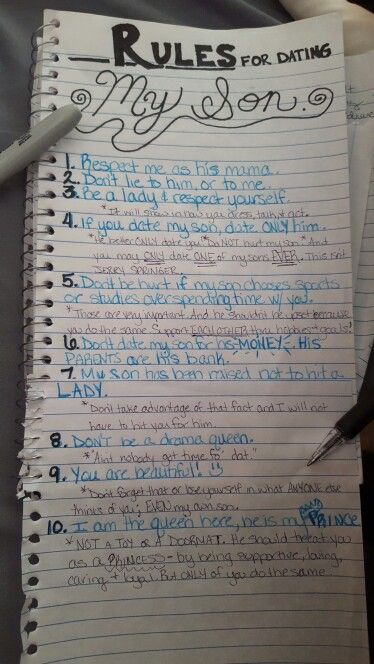 RULES FOR DATING
My Son.
1. Respect me as his mama.
2. Don't lie to him, or to me.
3. Be a lady & respect yourself.
*It will show in how you dress, talk, & act.
4. If you date my son, date ONLY him.
*He better ONLY date you. *Do NOT hurt my son* And
you may ONLY date ONE of my sons EVER. This isn't
JERRY SPRINGER.
5. Don't be hurt if my son chooses sports
or studies over spending time w/ you.
*Those are very important. And he shouldn't be upset because
you do the same. Support EACH OTHER hobbies & goals!
6. Don't date my son for his -MONEY-. His
PARENTS are his bank.
7. My son has been raised not to hit a
LADY.
*Don't take advantage of that fact and I will not
have to hit you for him.
8. DON'T be a drama queen.
*"Ain't nobody got time fo' dat."
9. You are beautiful!
*Don't forget that or lose yourself in what ANYONE else
thinks of you; EVEN my own son.
10. I am the queen here, he is my PRINCE
*NOT A TOY OR A DOORMAT. He should treat you
as a PRINCESS - by being supportive, loving,
caring + loyal. But ONLY if you do the same.